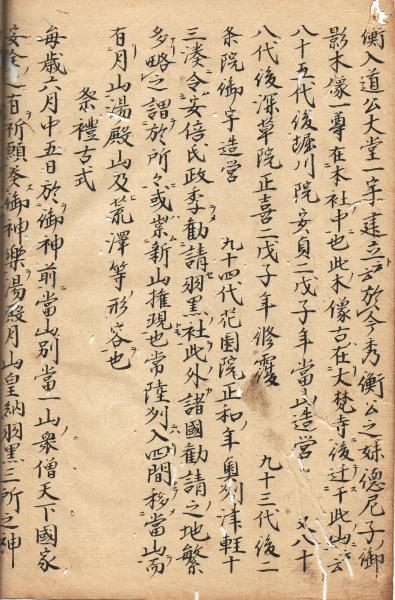 衡入道公大堂一宇建立云於今秀衡公之妹德尼子御
影木像一尊在本社中也此木像古在大梵寺後迁于此山云
八十五代後堀川院安貞二戊子年當山造営　又八十
八代後深草院正嘉二戊午年修覆　九十三代後二
条院御宇造営　九十四代花園院正和年奥州津軽十
三湊令安倍氏政季勧請羽黒社此外諸國勧請之地繁
多略之謂於所々或崇新山権現也常陸列入四間移當山而
有月山湯殿山及荒澤等形容也
祭禮古式
毎歳六月中五日於御神前當山別當一山衆僧天下國家
安全之百祈願奏御神樂湯殿月山皇納羽黒三所之神